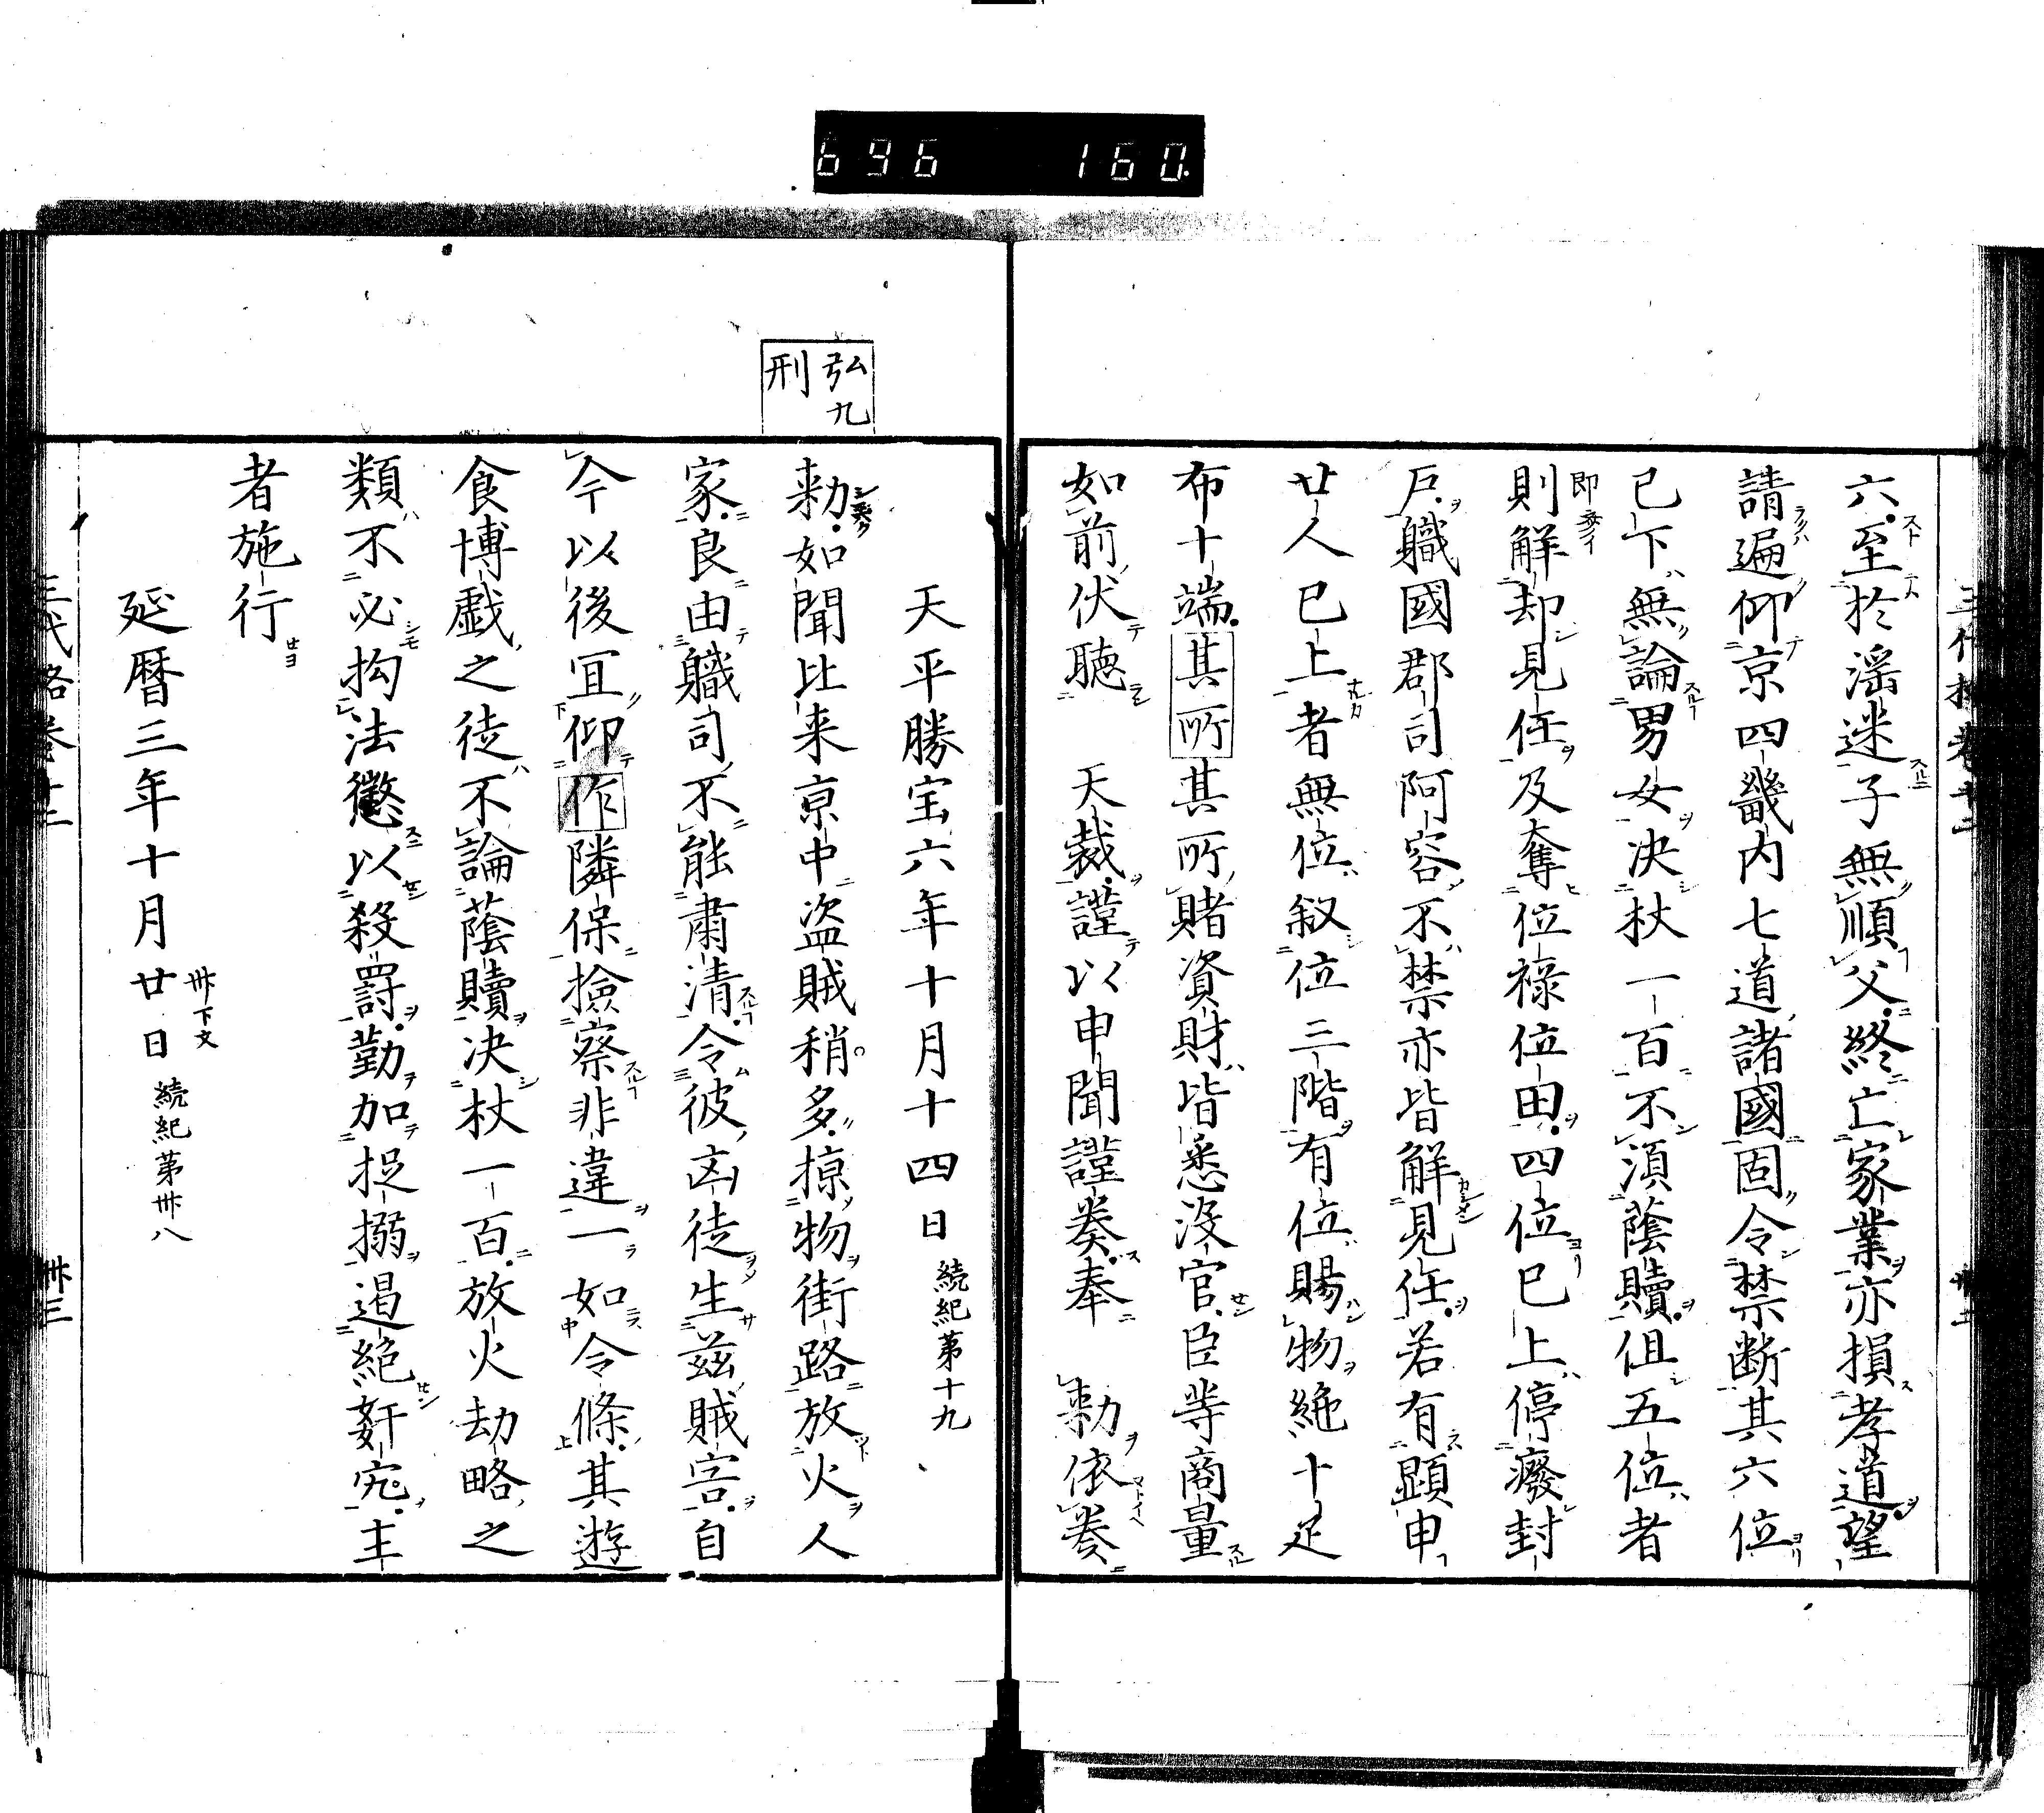 696 160.
六至於滛迷子無順父終亡家業亦損孝道望
請遍仰京四畿内七道諸國固令禁断其六位
已下無論男女决杖一百不湏蔭贖但五位者
即
則解却見任及奪位禄位田四位已上停癈封
戸職國郡司阿容不禁亦皆解見任若有顕申
廿人已上者無位叙位三階有位賜物絁十疋
布十端其所其所賭資財皆悉没官臣等商量
如前伏聴 天裁謹以申聞謹奏奉 勅依奏
弘九
刑
天平勝宝六年十月十四日 続紀第十九
勅如聞比来京中盗賊稍多掠物街路放火人
家良由職司不能粛清令彼凶徒生兹賊害自
今以後宜仰作隣保撿察非違一如令條其遊
食博戯之徒不論蔭贖决杖一百放火劫略之
類不必拘法懲以殺罸勤加捉搦遏絶姧宄主
者施行
延暦三年十月廿日 続紀第卅八
卅下文
卅三